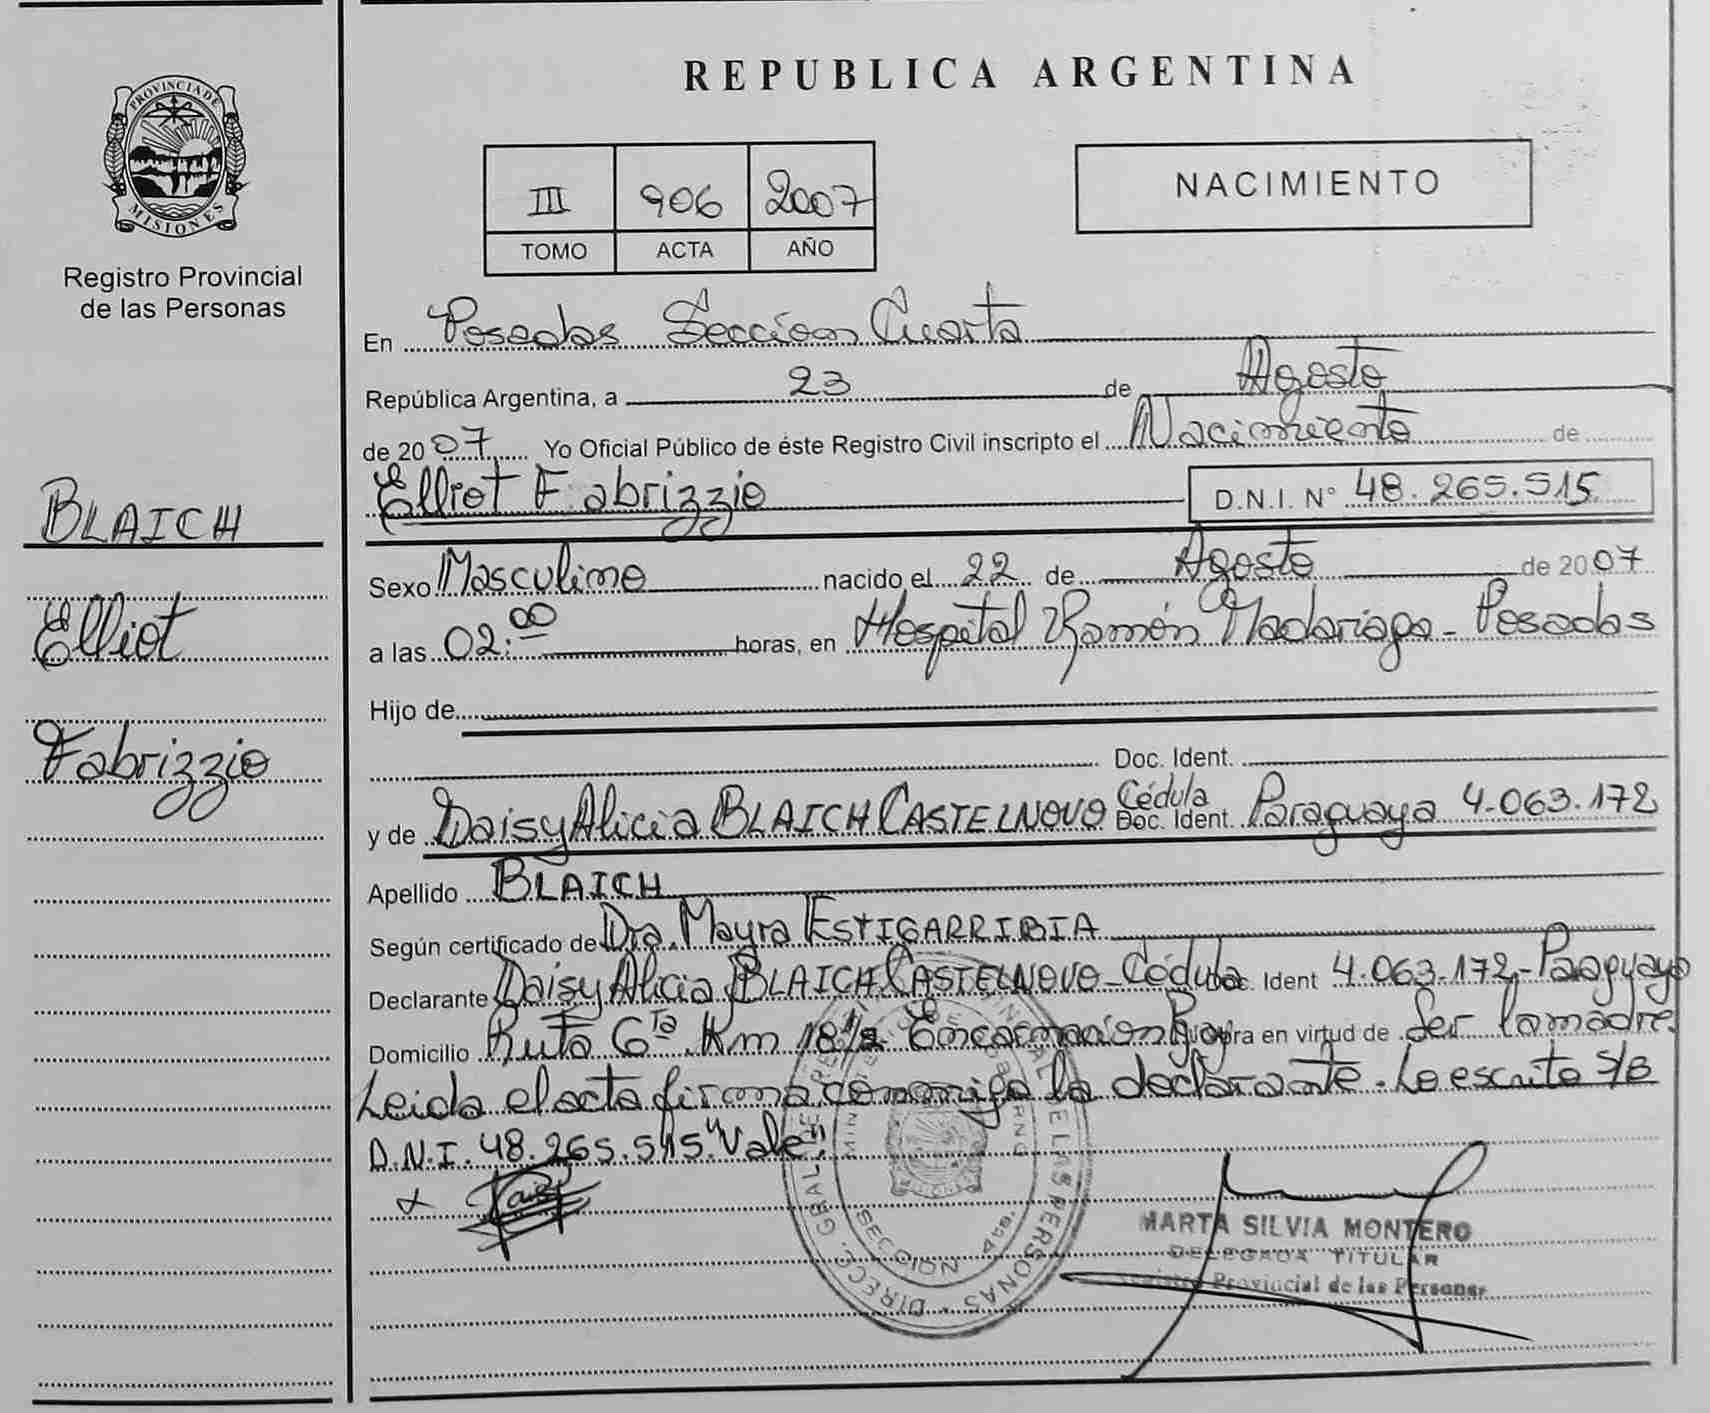 REPUBLICA ARGENTINA
PROVINCIA DE
MISIONES
Registro Provincial
de las Personas
III 906 2007
TOMO ACTA AÑO
NACIMIENTO
BLAICH
Elliot
Fabrizzio
En Posadas Seccion Cuarta
República Argentina, a 23 de Agosto
de 2007 Yo Oficial Público de éste Registro Civil inscripto el Nacimiento de
Elliot Fabrizzio D.N.I. N° 48.265.515
Sexo Masculino nacido el 22 de Agosto de 2007
a las 02:00 horas, en Hospital Ramón Madariaga - Posadas
Hijo de
Doc. Ident.
y de Daisy Alicia BLAICH CASTELNOVO Cédula Doc. Ident. Paraguaya 4.063.172
Apellido BLAICH
Según certificado de Dra. Mayra ESTIGARRIBIA
Declarante Daisy Alicia BLAICH CASTELNOVO - Cédula Doc. Ident 4.063.172 - Paraguaya
Domicilio Ruta 6ta Km 18 1/2 Encarnacion Pgy Obra en virtud de Ser la madre.
Leida el acta firma conmigo la declarante. Lo escrito S/B
D.N.I. 48.265.515 "Vale"
MARTA SILVIA MONTERO
DELEGADA TITULAR
Registro Provincial de las Personas